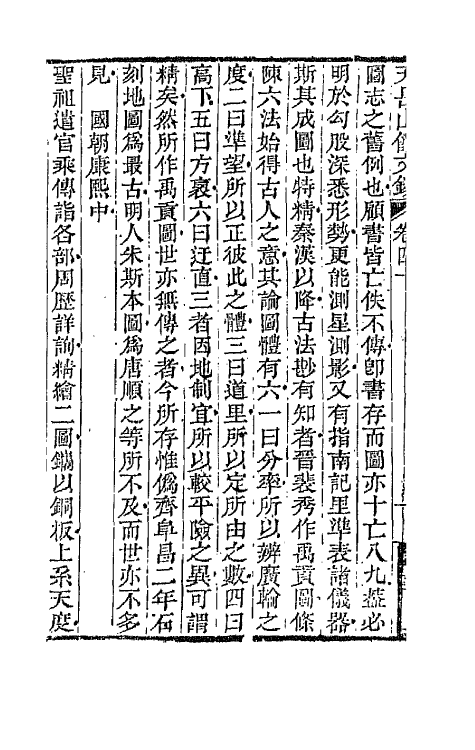 天岳山館文鈔 卷四十
圖志之舊例也顧書皆亡佚不傳卽書存而圖亦十亡八九蓋必
明於勾股深悉形勢更能測星測影又有指南記里準表諸儀器
斯其成圖也特精秦漢以降古法尠有知者晉裴秀作禹貢圖條
陳六法始得古人之意其論圖體有六一曰分率所以辨廣輪之
度二曰準望所以正彼此之體三曰道里所以定所由之數四曰
高下五曰方衺六曰迂直三者因地制宜所以較平險之異可謂
精矣然所作禹貢圖世亦無傳之者今所存惟僞齊阜昌二年石
刻地圖爲最古明人朱斯本圖爲唐順之等所不及而世亦不多
見 國朝康熙中
聖祖遣官乘傳詣各部周歷詳詢精繪二圖鐫以銅板上系天度